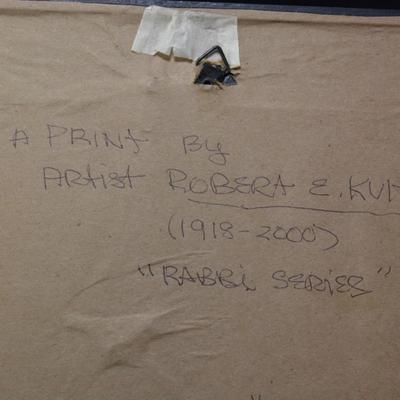 A PRINT By
ARtist ROBERT E.
(1918-2000)
"RABBi SERiES"